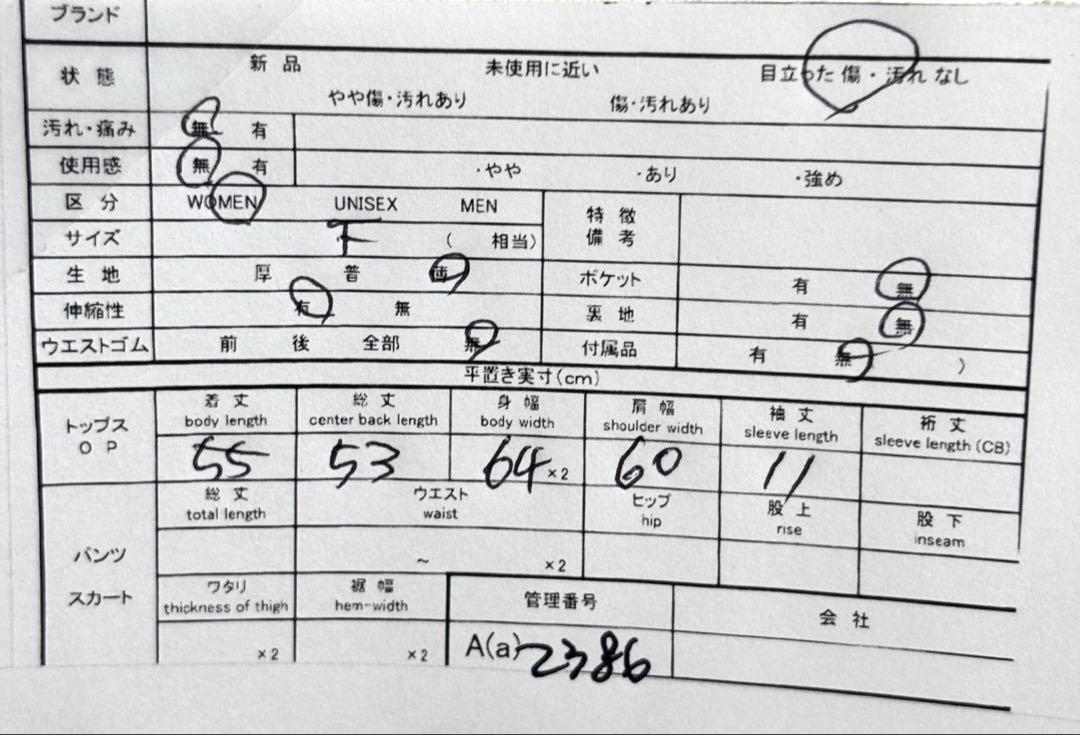 ブランド
状態 新品 未使用に近い 目立った 傷・汚れ なし
やや傷・汚れあり 傷・汚れあり
汚れ・痛み 無 有
使用感 無 有 ・やや ・あり ・強め
区分 WOMEN UNISEX MEN 特徴
サイズ F ( 相当) 備考
生地 厚 普 ポケット 有 無
伸縮性 有 無 裏地 有 無
ウエストゴム 前 後 全部 無 付属品 有 無 )
平置き実寸(cm)
着丈 総丈 身幅 肩幅 袖丈 裄丈
トップス body length center back length body width shoulder width sleeve length sleeve length (CB)
OP 55 53 64 ×2 60 11
総丈 ウエスト ヒップ 股上 股下
total length waist hip rise inseam
パンツ ~ ×2
スカート ワタリ 裾幅 管理番号 会社
thickness of thigh hem-width
×2 ×2 A(a) 2386